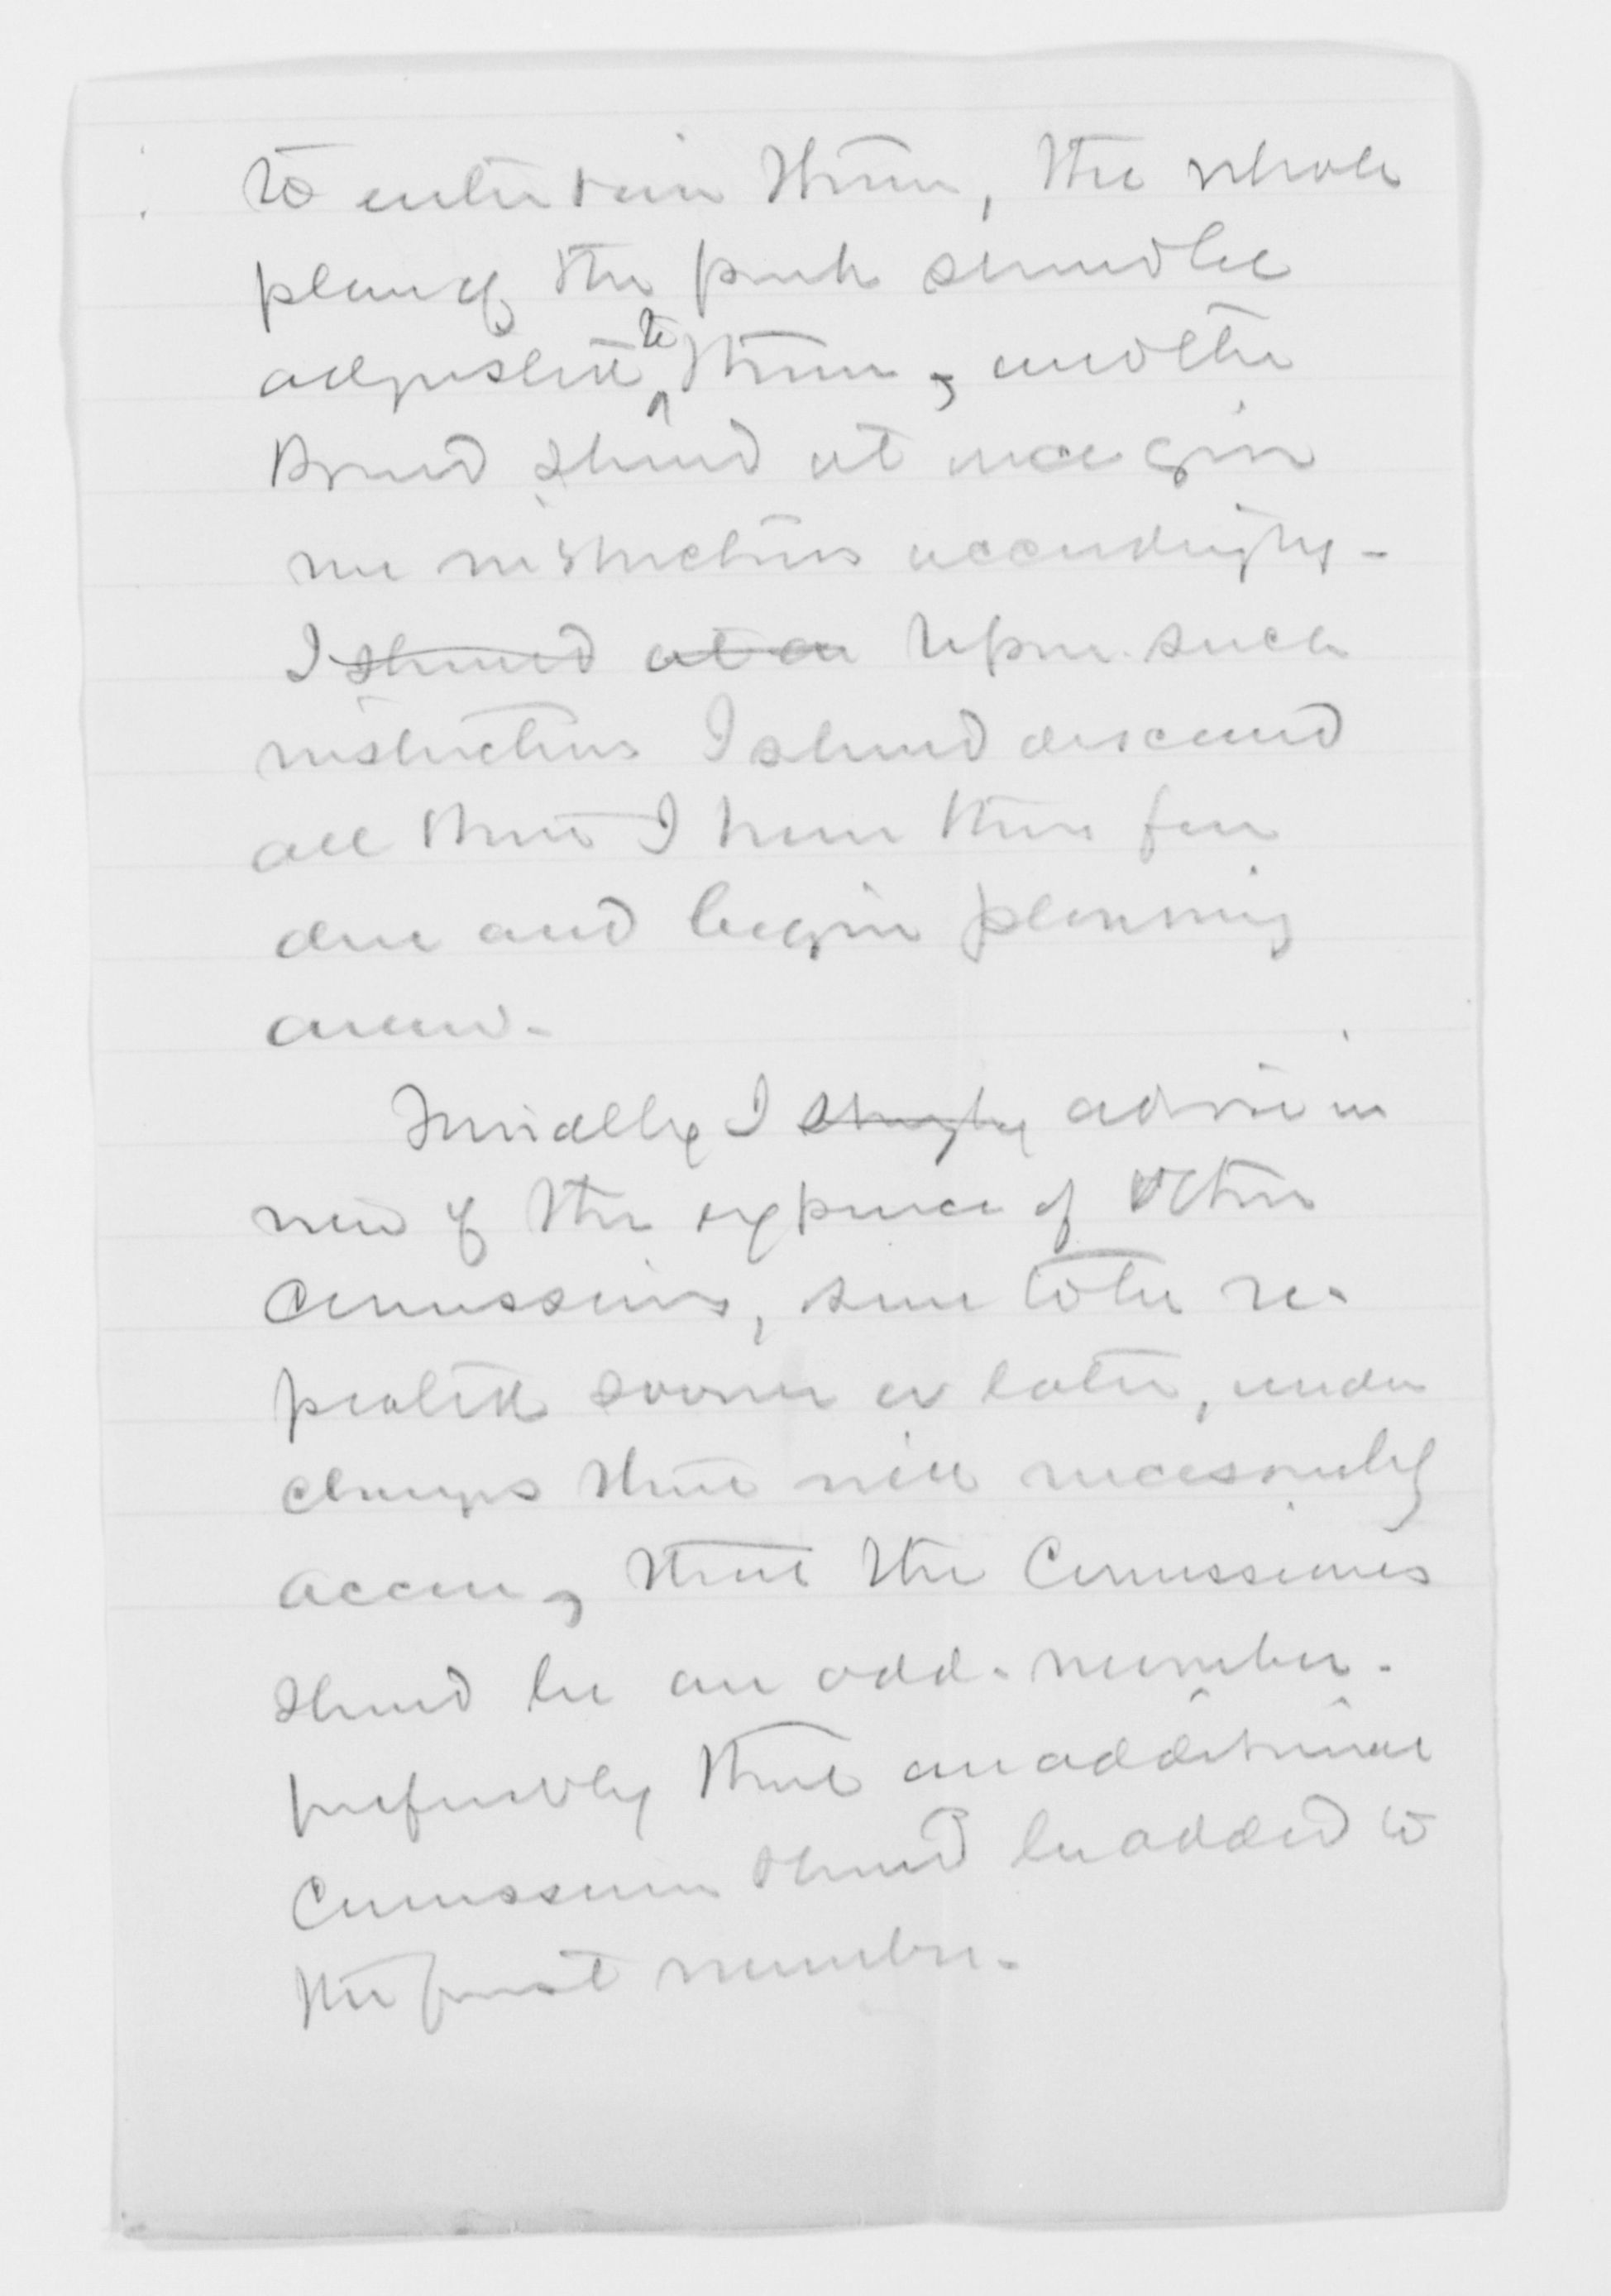 to entertain them, the whole
plan of the park should be
adjusted to them, and the
Board should at once give
me instructions accordingly -
I should at on Upon such
instructions I should discard
all that I have thus far
done and begin planning
anew -
Finally I strongly advise in
view of the experience of other
Commissions, sure to be re-
peated sooner or later, under
changes that will necessarily
occur, that the Commissioners
should be an odd number -
preferably that an additional
Commissioner should be added to
the present number -